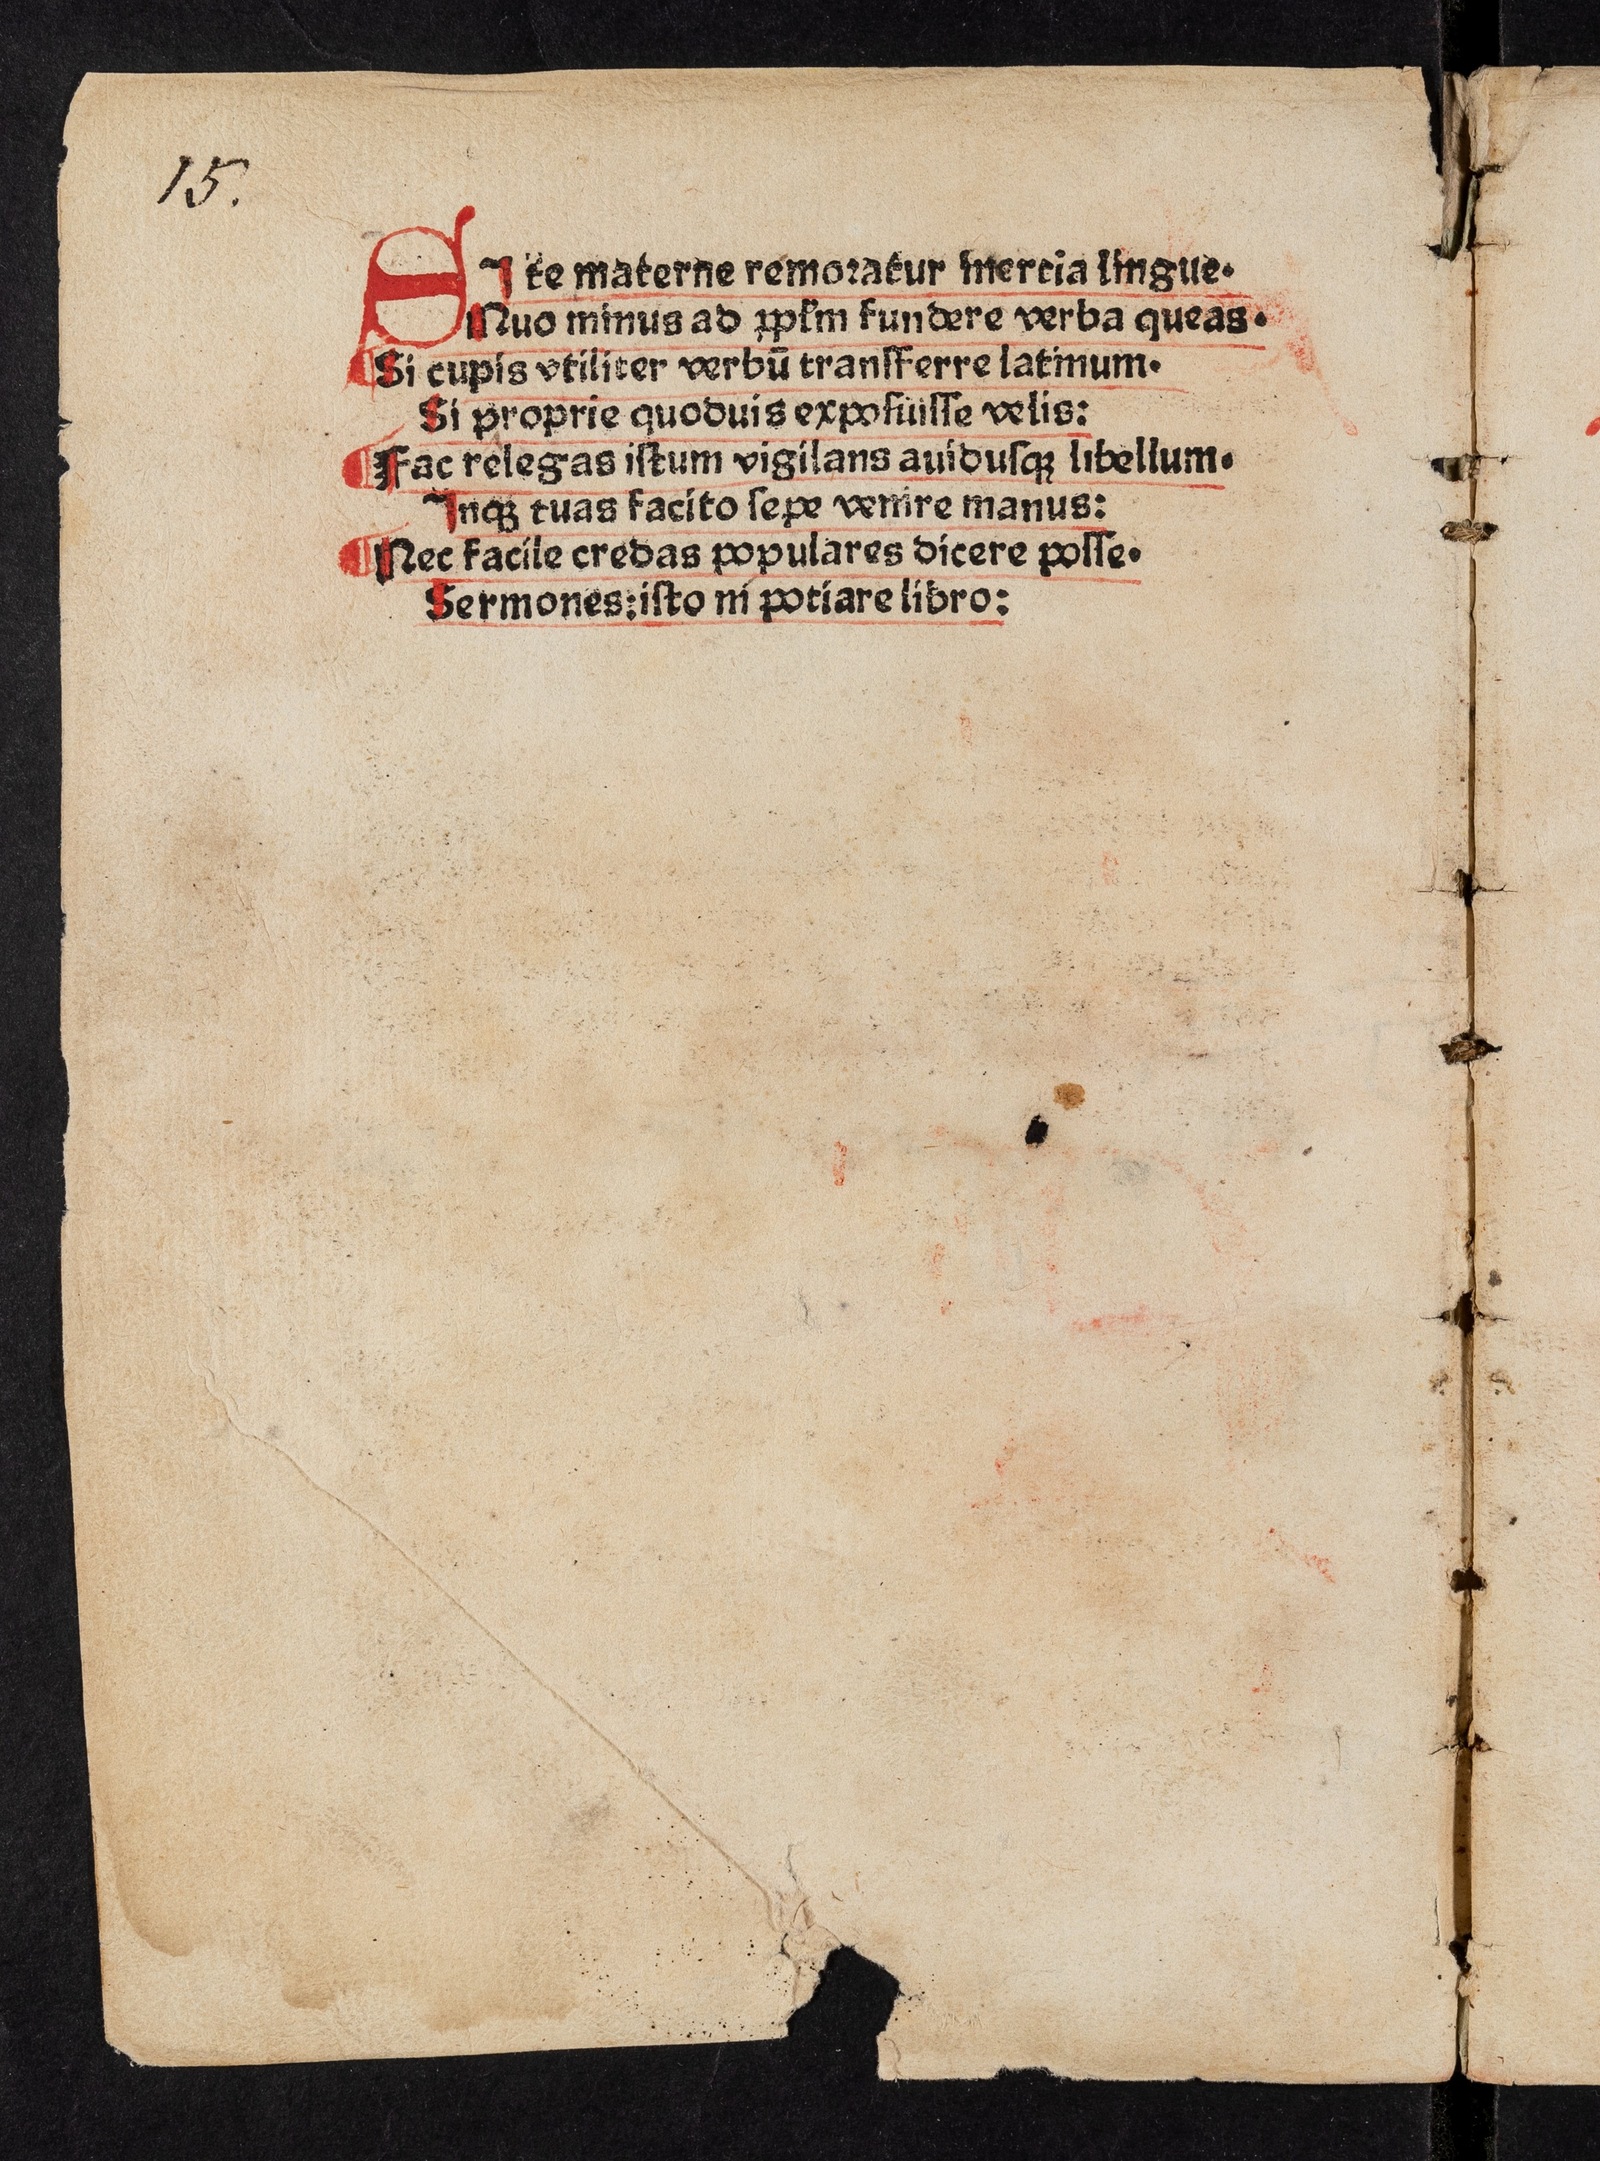 15.
SI te materne remoꝛatur inercia lingue.
Nuo minus ad ꝓpłm fundere verba queas.
Si cupis vtiliter verbū tranſferre latinum.
Si proprie quoduis expoſuiſſe velis:
Fac relegas iſtum vigilans auiduſqꝫ libellum.
Inqꝫ tuas facito ſepe venire manus:
Nec facile credas populares dicere poſſe.
Sermones:iſto ni potiare libro: